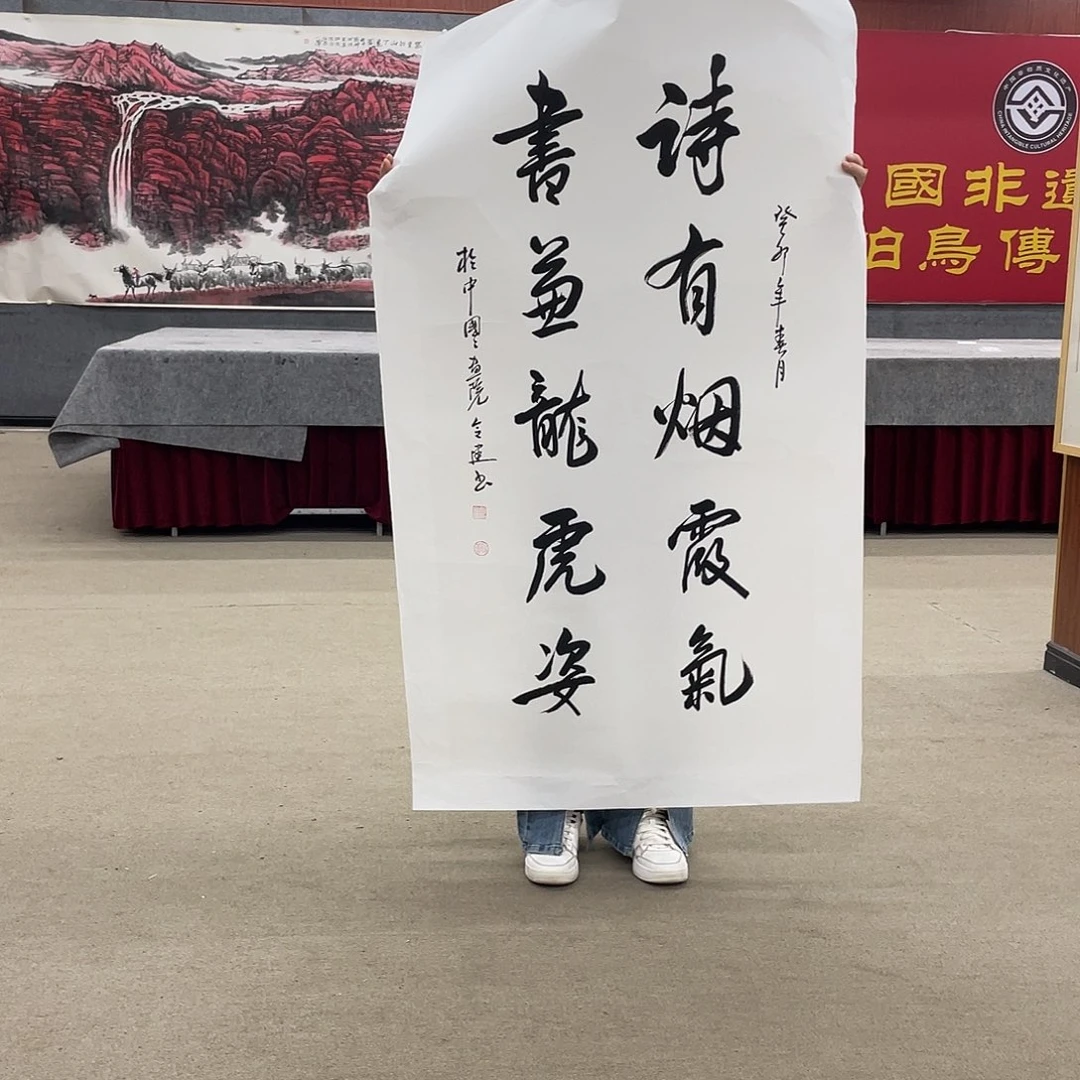 癸卯年春月
詩有烟霞氣
書兼龍虎姿
於中國畫院 令建书
國非遺
伯鳥傳
CHINA INTANGIBLE CULTURAL HERITAGE